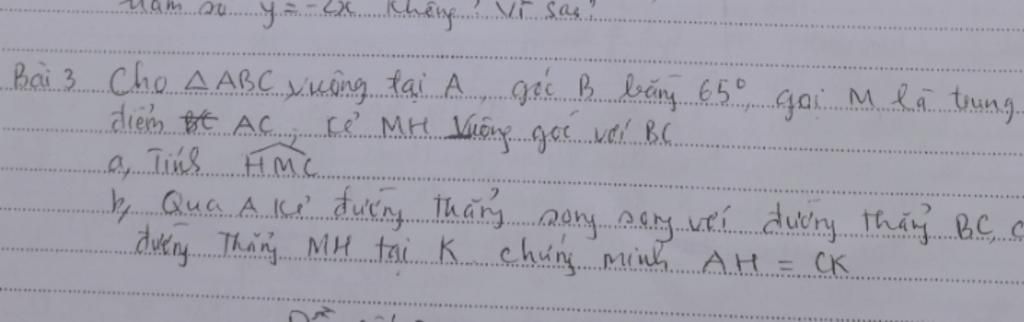 y = -2x không? Vì sao?
Bài 3 Cho △ABC vuông tại A, góc B bằng 65°, gọi M là trung
điểm AC, kẻ MH vuông góc với BC
a, Tính HMC
b, Qua A kẻ đường thẳng song song với đường thẳng BC, c
đường thẳng MH tại K chứng minh AH = CK